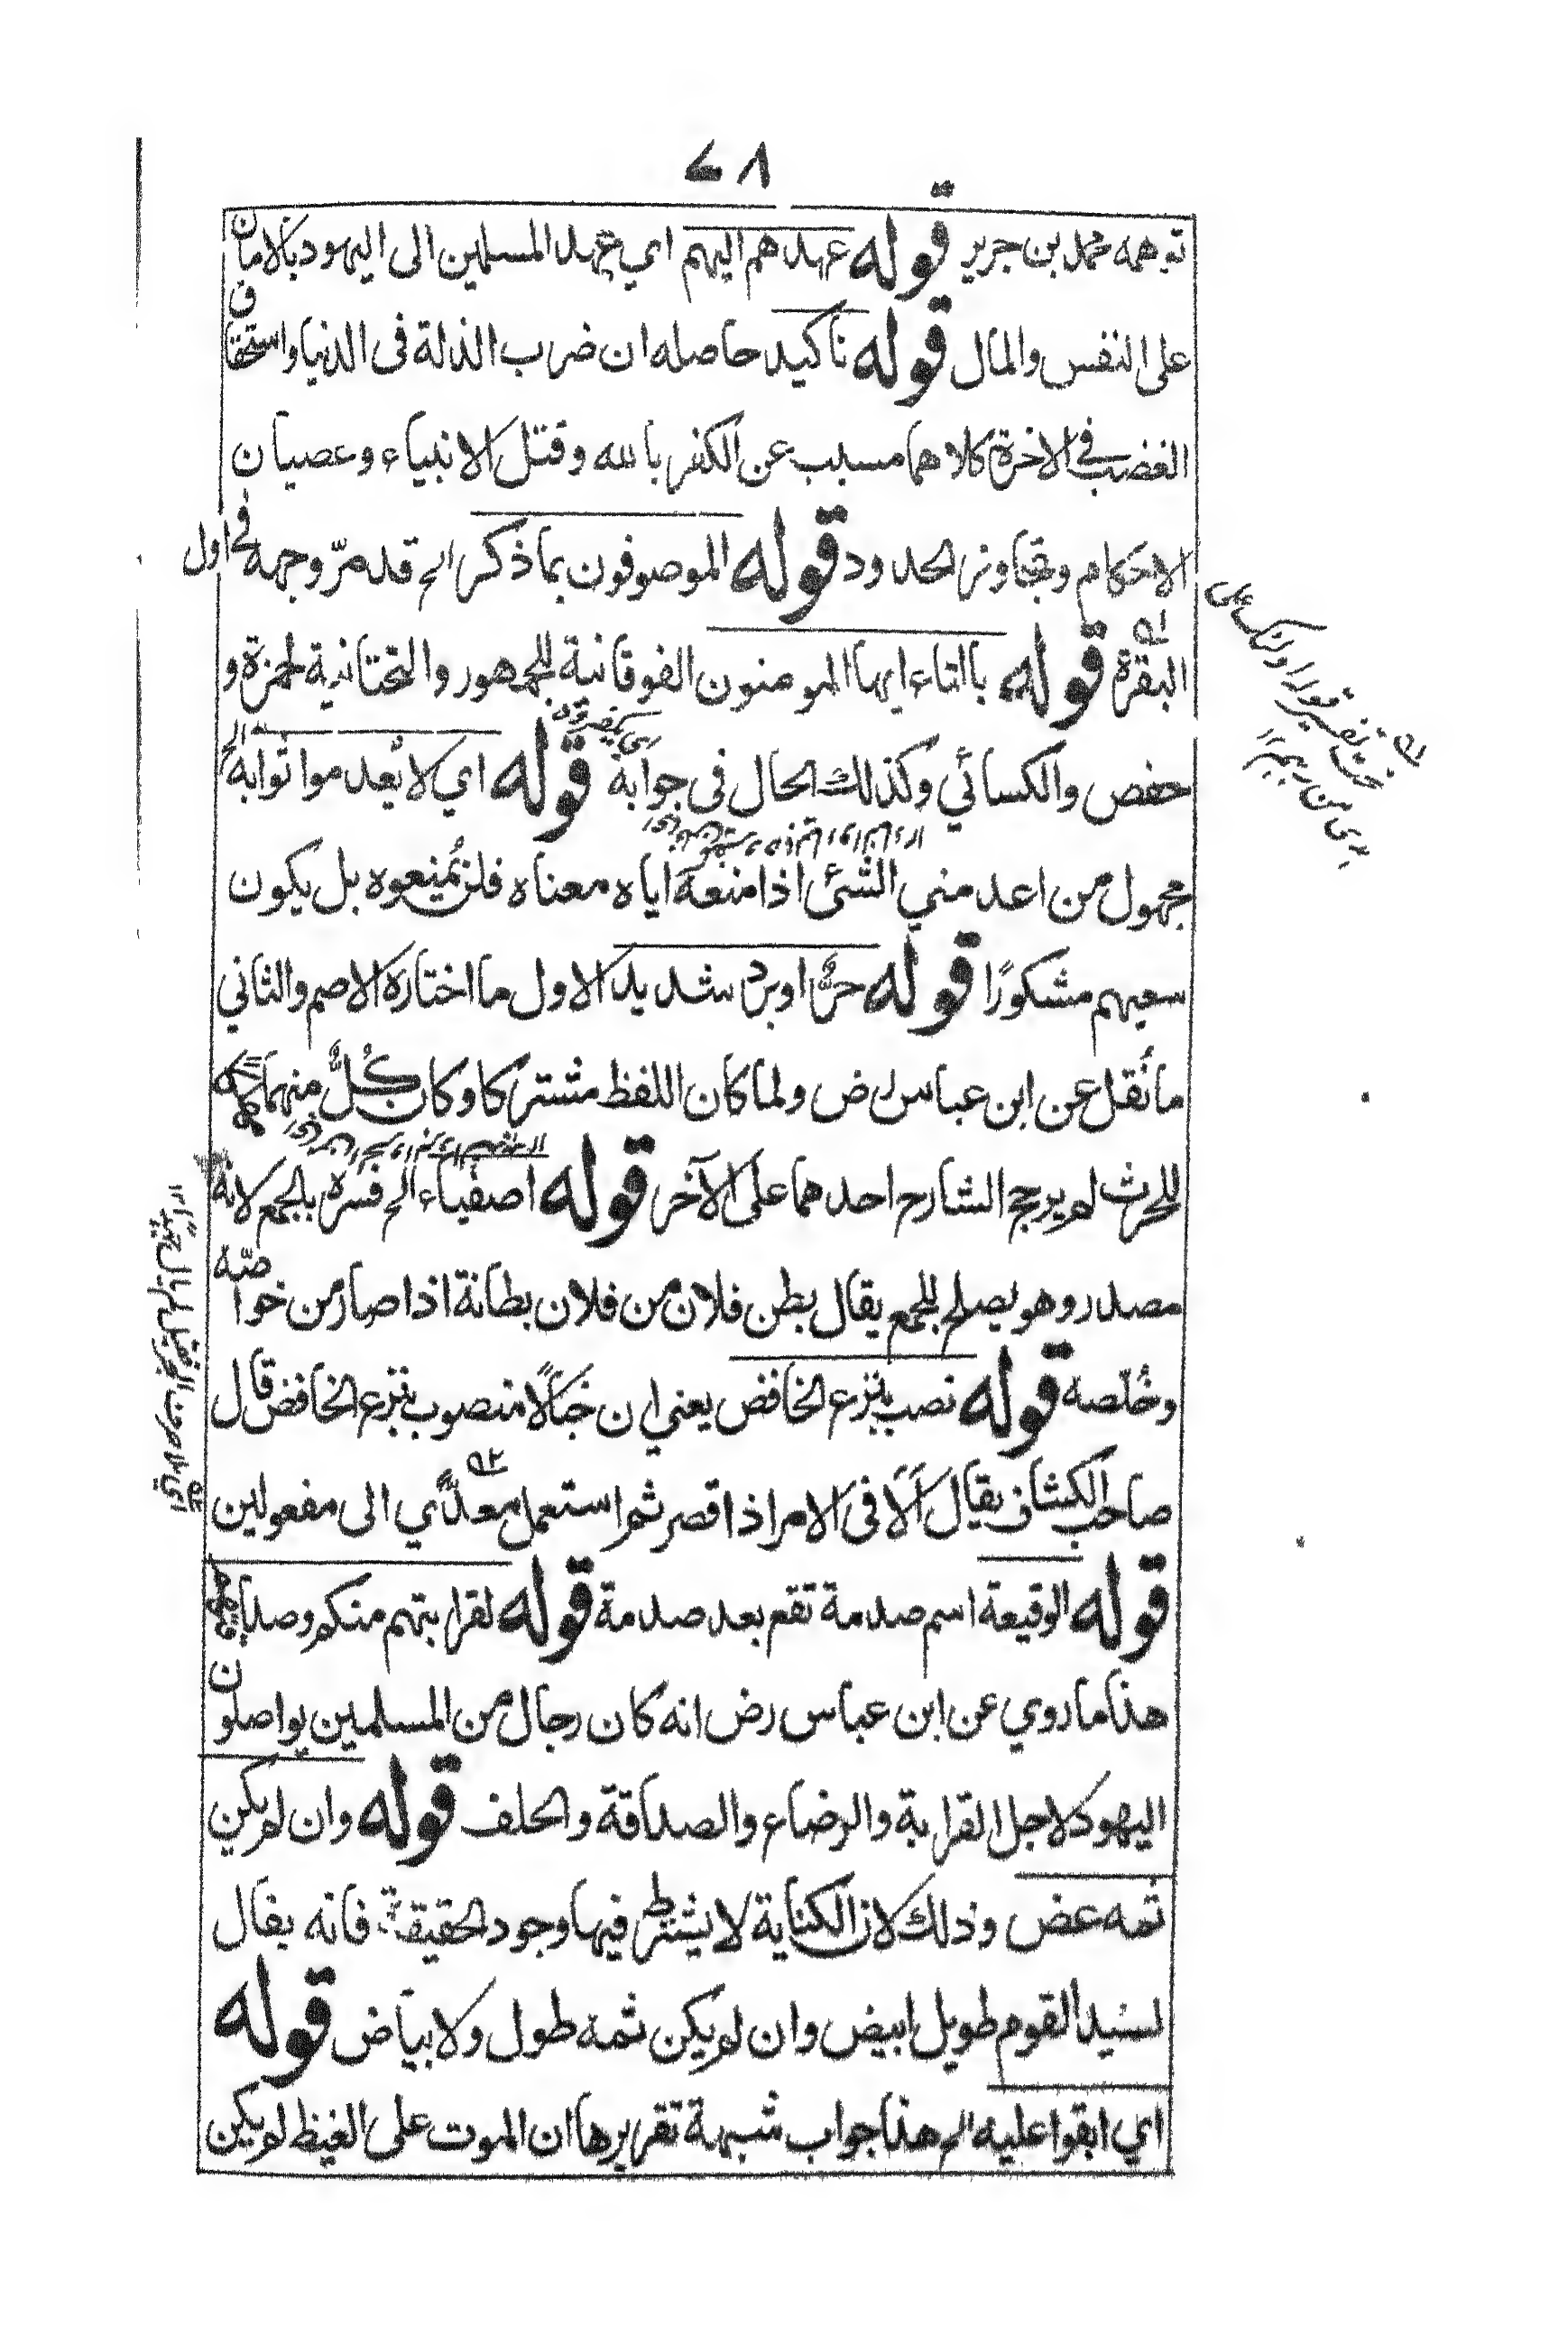 ٧٨
توهمه محمد بن جرير قوله عهدهم اليهم اي عهد المسلمين الى اليهود بالامان
على النفس والمال قوله تاكيد حاصله ان ضرب الذلة فى الدنيا واستحقاق
الغضب في الاخرة كلاهما مسبب عن الكفر بالله وقتل الانبياء وعصيان
الاحكام وتجاوز الحدود قوله الموصوفون بما ذكر الخ قد مرّ وجهه في اول
البقرة قوله بالتاء ايها المومنون الفوقانية للجمهور والتحتانية لحمزة و
حفص والكسائي وكذلك الحال فى جوابه قوله اي لا تُعدموا ثوابه الخ
مجهول من اعدمني الشئ اذا منعه اياه معناه فلن تُمنعوه بل يكون
سعيهم مشكورًا قوله حرٌّ او برد شديد الاول ما اختاره الاصم والثاني
ما نُقل عن ابن عباس رض ولما كان اللفظ مشتركا وكان كُلٌّ منهما
للحرث لم يرجح الشارح احدهما على الآخر قوله اصفياء الخ فسره بالجمع لانه
مصدر وهو يصلح للجمع يقال بطن فلان من فلان بطانة اذا صار من خواصّه
وخُلّصه قوله نصب بنزع الخافض يعني ان خبالًا منصوب بنزع الخافض قال
صاحب الكشاف يقال اَلَا فى الامر اذا قصر ثم استعمل معدًّي الى مفعولين
قوله الوقيعة اسم صدمة تقع بعد صدمة قوله لقرابتهم منكم وصداقتهم
هذا ما روي عن ابن عباس رض انه كان رجال من المسلمين يواصلون
اليهود لاجل القرابة والرضاع والصداقة والحلف قوله وان لم يكن
ثمه عض وذلك لان الكناية لا يشترط فيها وجود الحقيقة فانه يقال
لسيد القوم طويل ابيض وان لم يكن ثمه طول ولا بياض قوله
اي ابقوا عليه الخ هذا جواب شبهة تقريرها ان الموت على الغيظ لم يكن